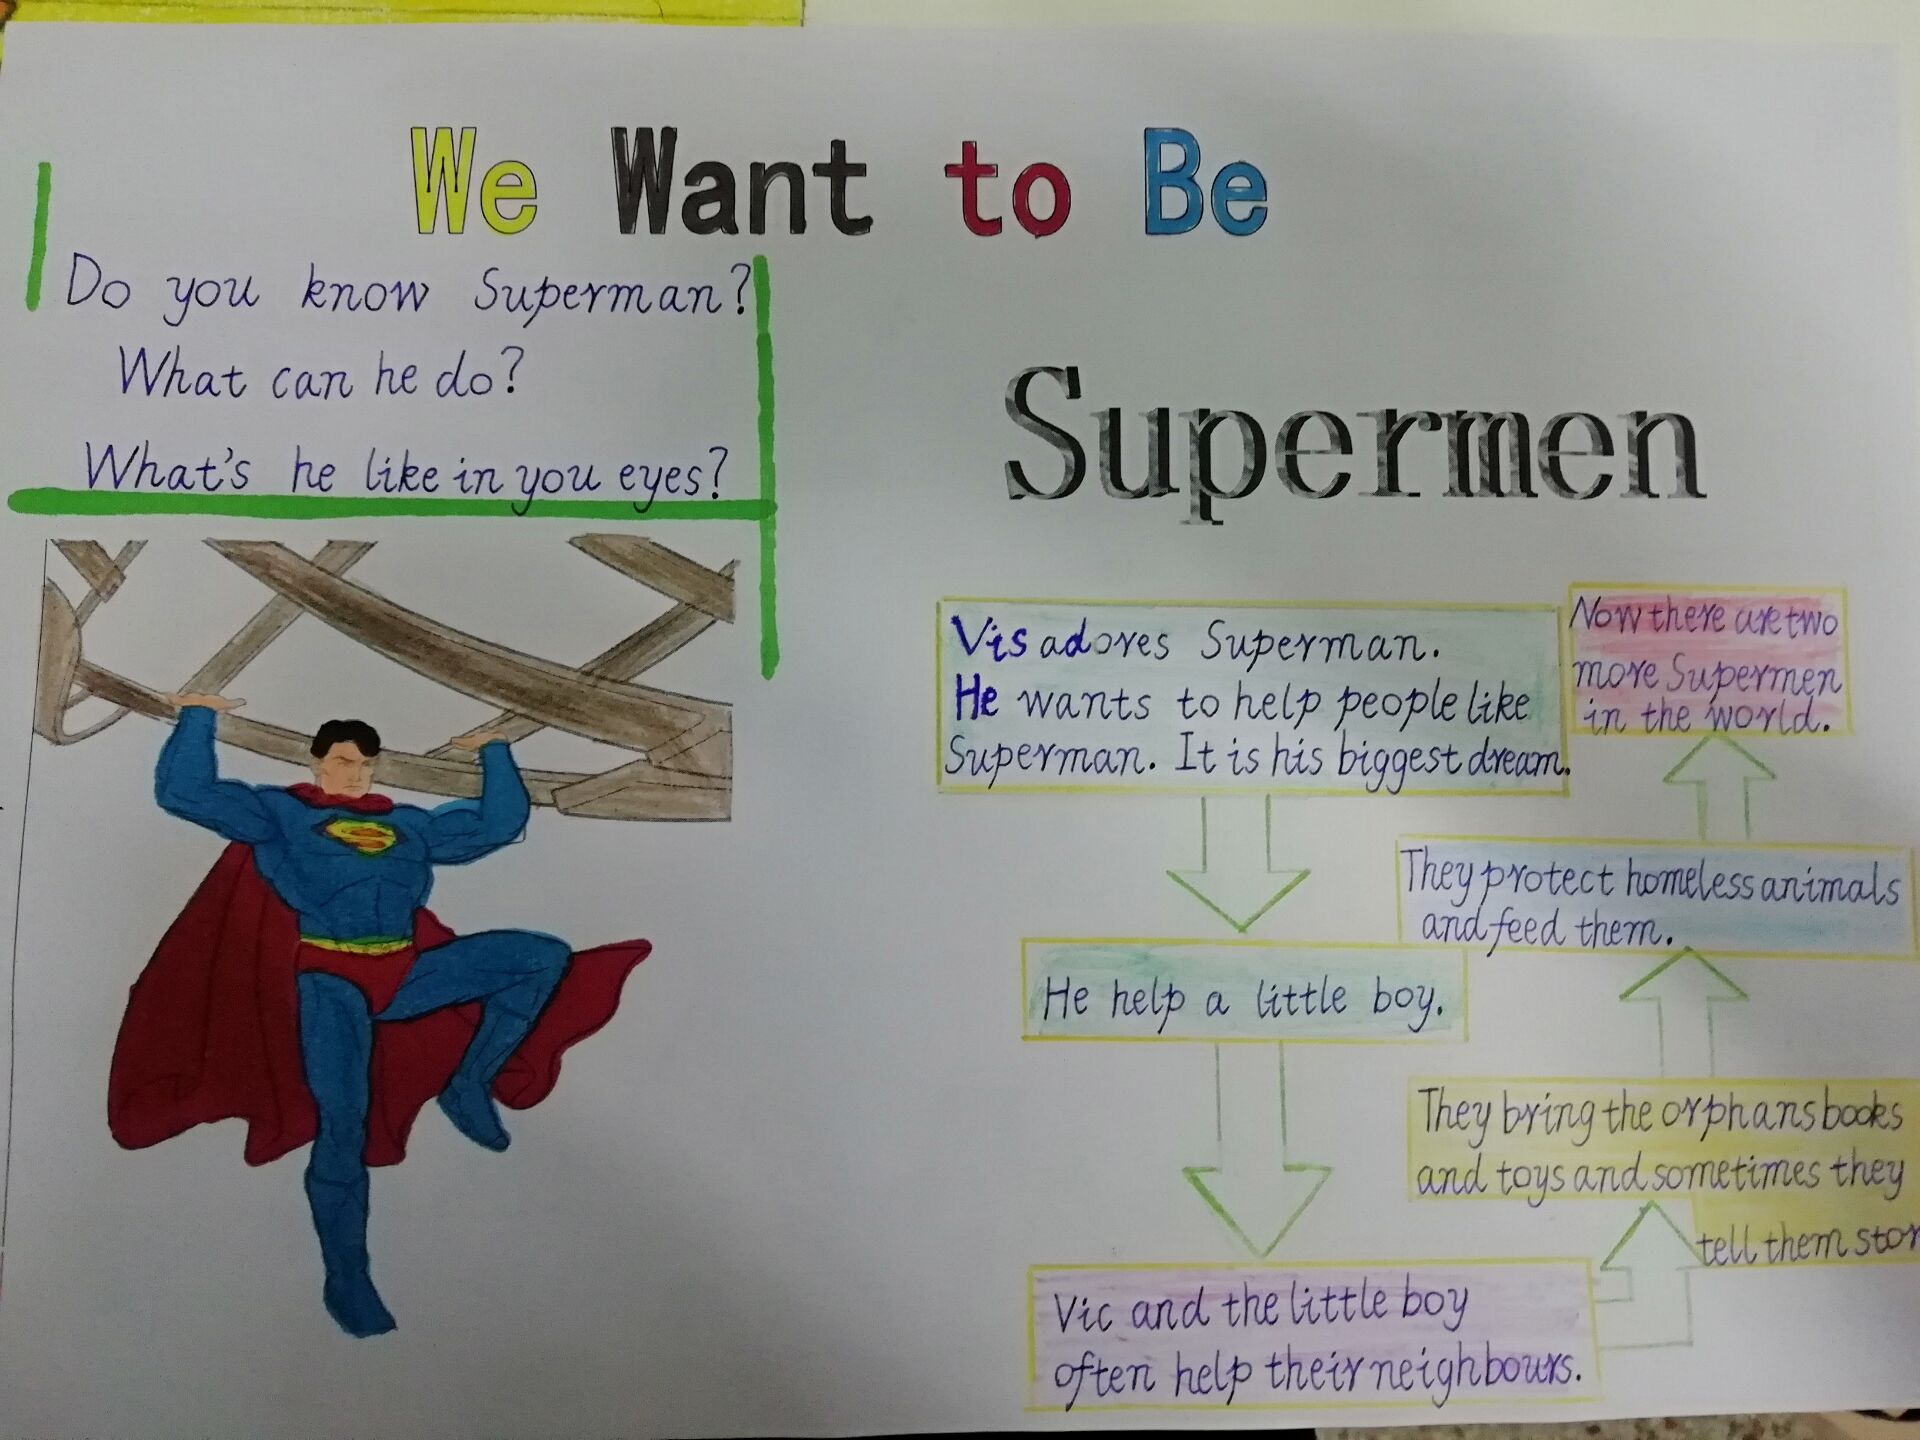 We Want to Be
Do you know Superman?
What can he do?
What's he like in you eyes?
Supermen
Vis adores Superman.
He wants to help people like
Superman. It is his biggest dream.
He help a little boy.
Vic and the little boy
often help their neighbours.
They bring the orphans books
and toys and sometimes they
tell them stor
They protect homeless animals
and feed them.
Now there are two
more Supermen
in the world.
S